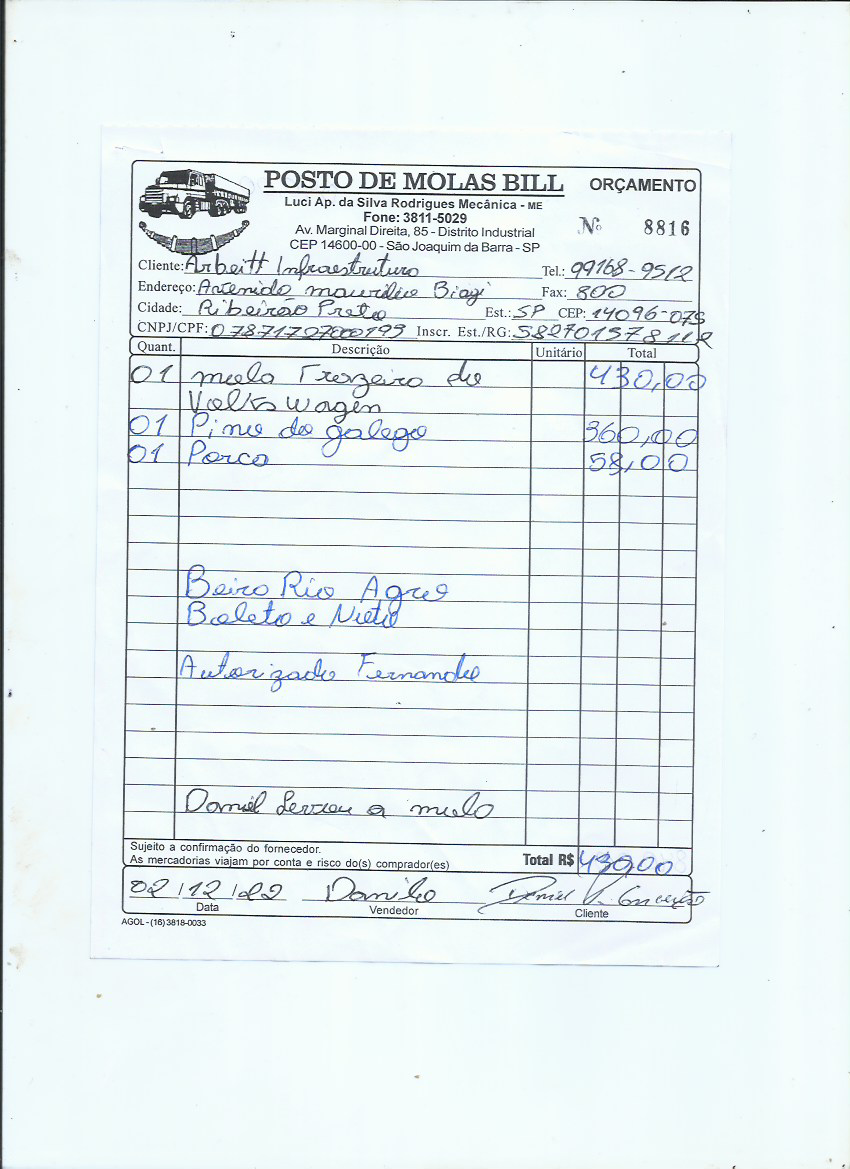 POSTO DE MOLAS BILL
ORÇAMENTO
Luci Ap. da Silva Rodrigues Mecânica - ME
Fone: 3811-5029
Av. Marginal Direita, 85 - Distrito Industrial
CEP 14600-00 - São Joaquim da Barra - SP
Nº 8816
Cliente: Arbeitt Infraestrutura Tel.: 99168-9512
Endereço: Avenida maurilio Biagi Fax: 800
Cidade: Ribeirão Preto Est.: SP CEP: 14096-075
CNPJ/CPF: Inscr. Est./RG:
Quant. Descrição Unitário Total
01 mola Trazeiro do 430,00
Volks Wagen
01 Pino do galego 360,00
01 Porca 58,00
Beira Rio Agro
Boleto e
Autorizado Fernando
Daniel Levou a mola
Sujeito a confirmação do fornecedor.
As mercadorias viajam por conta e risco do(s) comprador(es)
Total R$
02/12/22 Danilo Daniel
Data Vendedor Cliente
AGOL - (16) 3818-0033